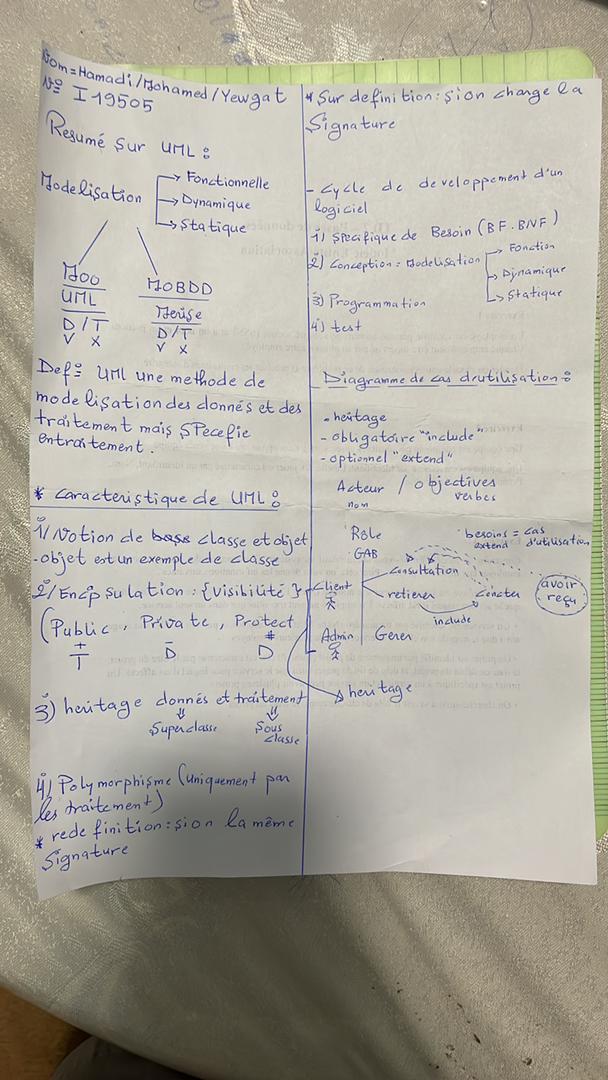 Nom = Hamadi / Mohamed / Yewgat
N° I 19505
Resumé sur UML :
Modelisation
→ Fonctionnelle
→ Dynamique
→ Statique
MOO
UML
D/T
V X
MOBDD
Merise
D/T
V X
Def : UML une methode de
modelisation des donnés et des
traitement mais specefie
entraitement.
* Caracteristique de UML :
1) Notion de classe et objet
- objet est un exemple de classe
2) Encapsulation : {visibilité}
(Public, Private, Protect
+ - #
T D D
3) heritage donnés et traitement
⇓ ⇓
Superclasse Sous classe
4) Polymorphisme (uniquement par
les traitement)
* redefinition : si on la même
Signature
* Sur definition : si on change la
Signature
- Cycle de developpement d'un
logiciel
1) Specifique de Besoin (BF. BNF)
2) Conception = Modelisation
→ Fonction
→ Dynamique
→ Statique
3) Programmation
4) test
Diagramme de cas d'utilisation :
- heritage
- obligatoire "include"
- optionnel "extend"
Acteur / objectives
nom verbes
Rôle
besoins = cas
d'utilisation
GAB
extend
Client
consultation
retierer
include
avoir
reçu
Admin
Gerer
heritage